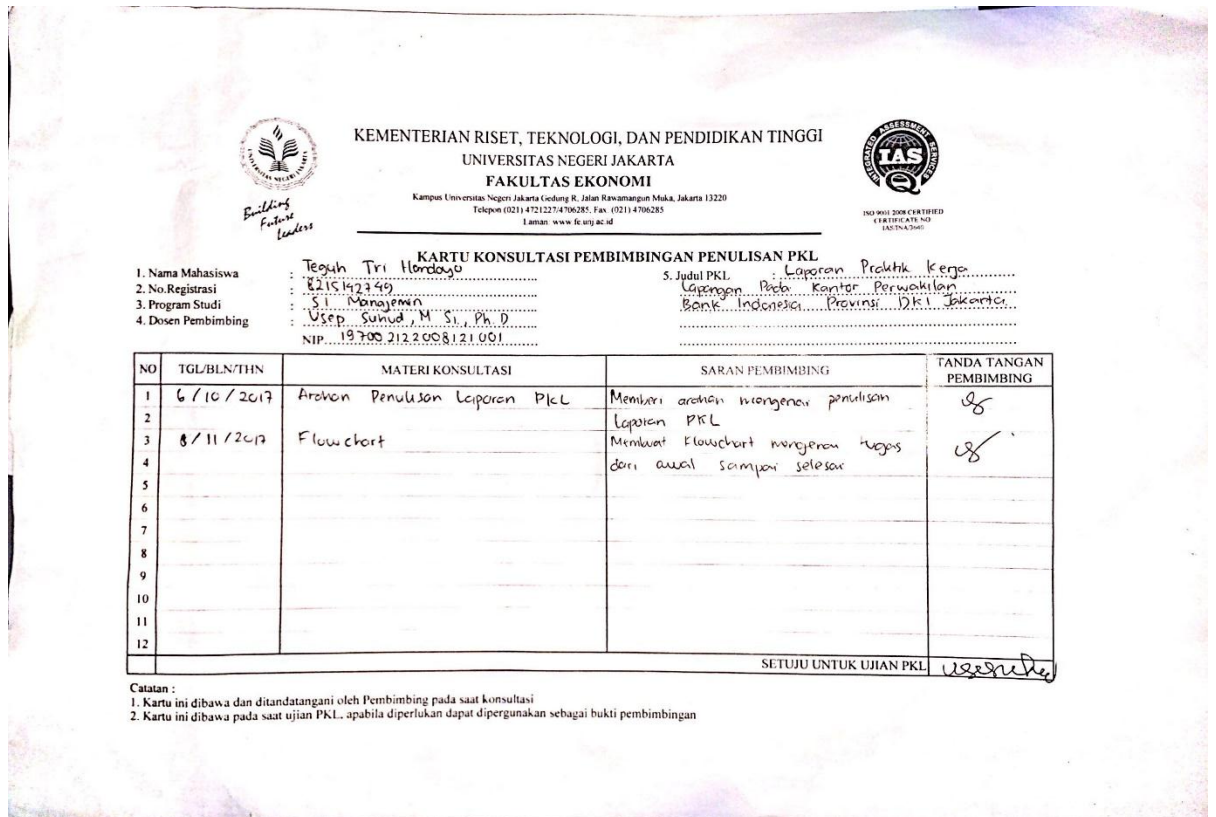 KEMENTERIAN RISET, TEKNOLOGI, DAN PENDIDIKAN TINGGI
UNIVERSITAS NEGERI JAKARTA
FAKULTAS EKONOMI
Kampus Universitas Negeri Jakarta Gedung R, Jalan Rawamangun Muka, Jakarta 13220
Telepon (021) 4721227/4706285, Fax. (021) 4706285
Laman: www.fe.unj.ac.id
UNIVERSITAS NEGERI JAKARTA
Building
Future
Leaders
INTEGRATED ASSESSMENT SERVICES
IAS
ISO 9001 2008 CERTIFIED
CERTIFICATE NO
KARTU KONSULTASI PEMBIMBINGAN PENULISAN PKL
1. Nama Mahasiswa : Teguh Tri Handoyo
2. No.Registrasi : 8215142749
3. Program Studi : S1 Manajemen
4. Dosen Pembimbing : Usep Suhud, M Si, Ph.D
NIP. 197002122008121001
5. Judul PKL : Laporan Praktik Kerja
Lapangan Pada Kantor Perwakilan
Bank Indonesia Provinsi DKI Jakarta
NO TGL/BLN/THN MATERI KONSULTASI SARAN PEMBIMBING TANDA TANGAN PEMBIMBING
1 6/10/2017 Arahan Penulisan Laporan PKL Memberi arahan mengenai penulisan
2 laporan PKL
3 8/11/2017 Flowchart Membuat Flowchart mengenai tugas
4 dari awal sampai selesai
5
6
7
8
9
10
11
12
SETUJU UNTUK UJIAN PKL
Catatan :
1. Kartu ini dibawa dan ditandatangani oleh Pembimbing pada saat konsultasi
2. Kartu ini dibawa pada saat ujian PKL, apabila diperlukan dapat dipergunakan sebagai bukti pembimbingan